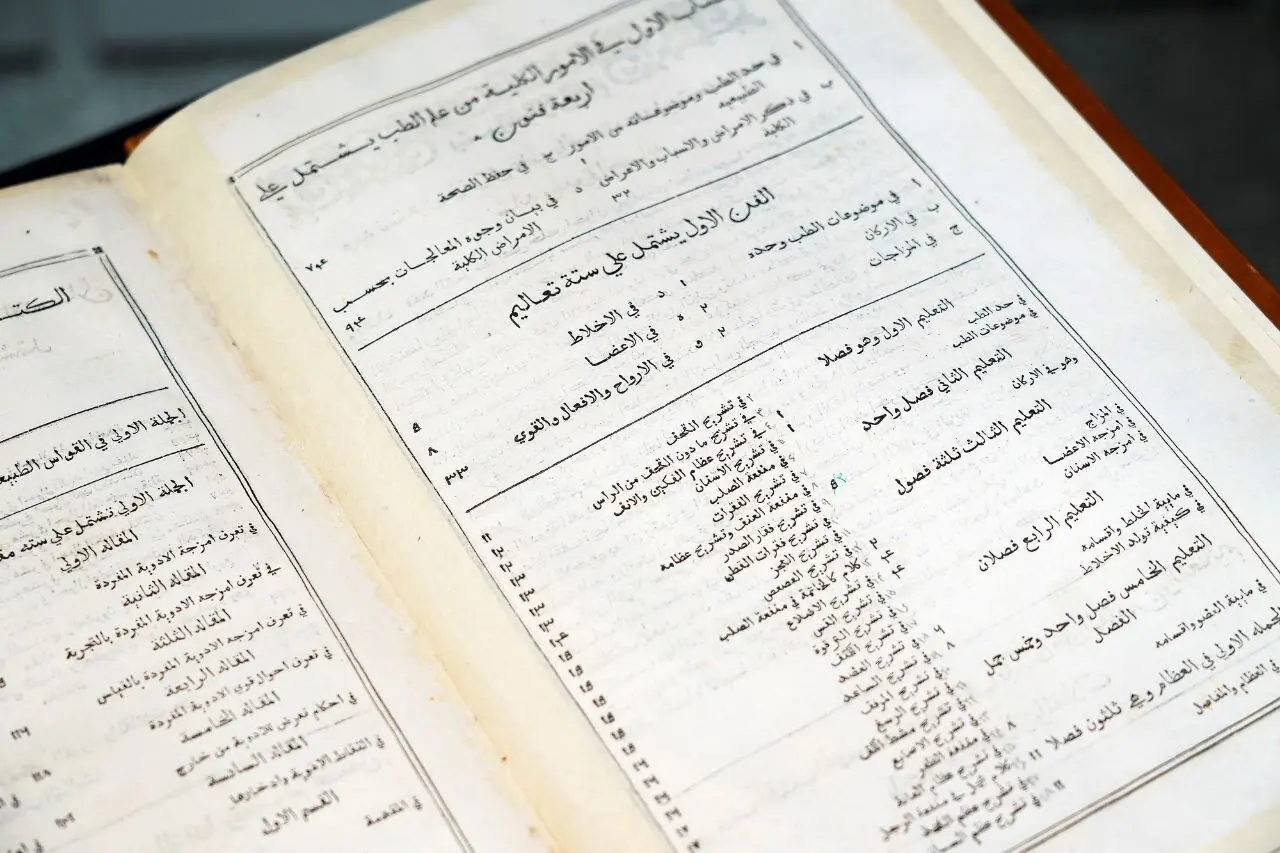 الاول في الامور الكلية من علم الطب يشتمل علي
اربعة فنون
ا في حد الطب وموضوعاته من الامور
الطبيعيه
ج في حفظ الصحة
ب في ذكر الامراض والاسباب والامراض
الكلية
د في بيان وجوه المعالجات بحسب
الامراض الكلية
الفن الاول يشتمل علي ستة تعاليم
ا في موضوعات الطب وحده
ب في الاركان
ج في المزاجات
د في الاخلاط
ه في الاعضا
و في الارواح والافعال والقوي
التعليم الاول وهو فصلا
في حد الطب
في موضوعات الطب
التعليم الثاني فصل واحد
وهو في الاركان
التعليم الثالث ثلثة فصول
في المزاج
في امزجه الاعضا
في امزجه الاسنان
التعليم الرابع فصلان
في ماهية الخلط واقسامه
في كيفية تولد الاخلاط
التعليم الخامس فصل واحد وخمس جمل
الفصل
في ماهية العضو واقسامه
الجمله الاولي في العظام وهي ثلثون فصلا
في العظام والمفاصل
في تشريح القحف
في تشريح مادون القحف من الراس
في تشريح عظام الفكين والانف
في تشريح الاسنان
في منفعة الصلب
في تشريح الفقرات
في منفعة العنق وتشريح عظامه
في تشريح فقار الصدر
في تشريح فقرات القطن
في تشريح العجز
في تشريح العصعص
كلام كالخاتمة في منفعة الصلب
في تشريح الاضلاع
في تشريح القس
في تشريح الترقوة
في تشريح الكتف
في تشريح العضد
في تشريح الساعد
في تشريح المرفق
في تشريح الرسغ
في تشريح مشط الكف
في تشريح الاصابع
في منفعة الظفر
في تشريح عظام العانة
كلام مجمل في منفعة الرجل
في تشريح عظم الفخذ
في تشريح عظم الساق
الجملة الاولي في القوانين الطبيعيه
الجملة الاولي تشتمل علي سته
المقاله الاولي
في تعرف امزجة الادوية المفردة
المقاله الثانية
في تعرف امزجه الادوية المفردة بالتجربة
المقاله الثلثة
في تعرف امزجه الادوية المفردة بالقياس
المقاله الرابعة
في تعرف احوال قوي الادوية المفردة
المقاله الخامسة
في احكام تعرض للادوية من خارج
المقاله السادسة
في التقاط الادوية وادخارها
القسم الاول